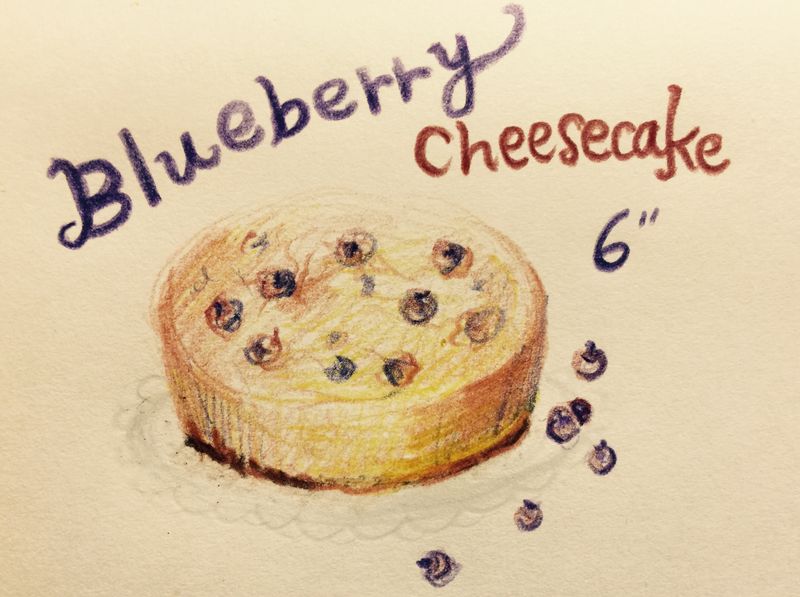 Blueberry
Cheesecake
6"